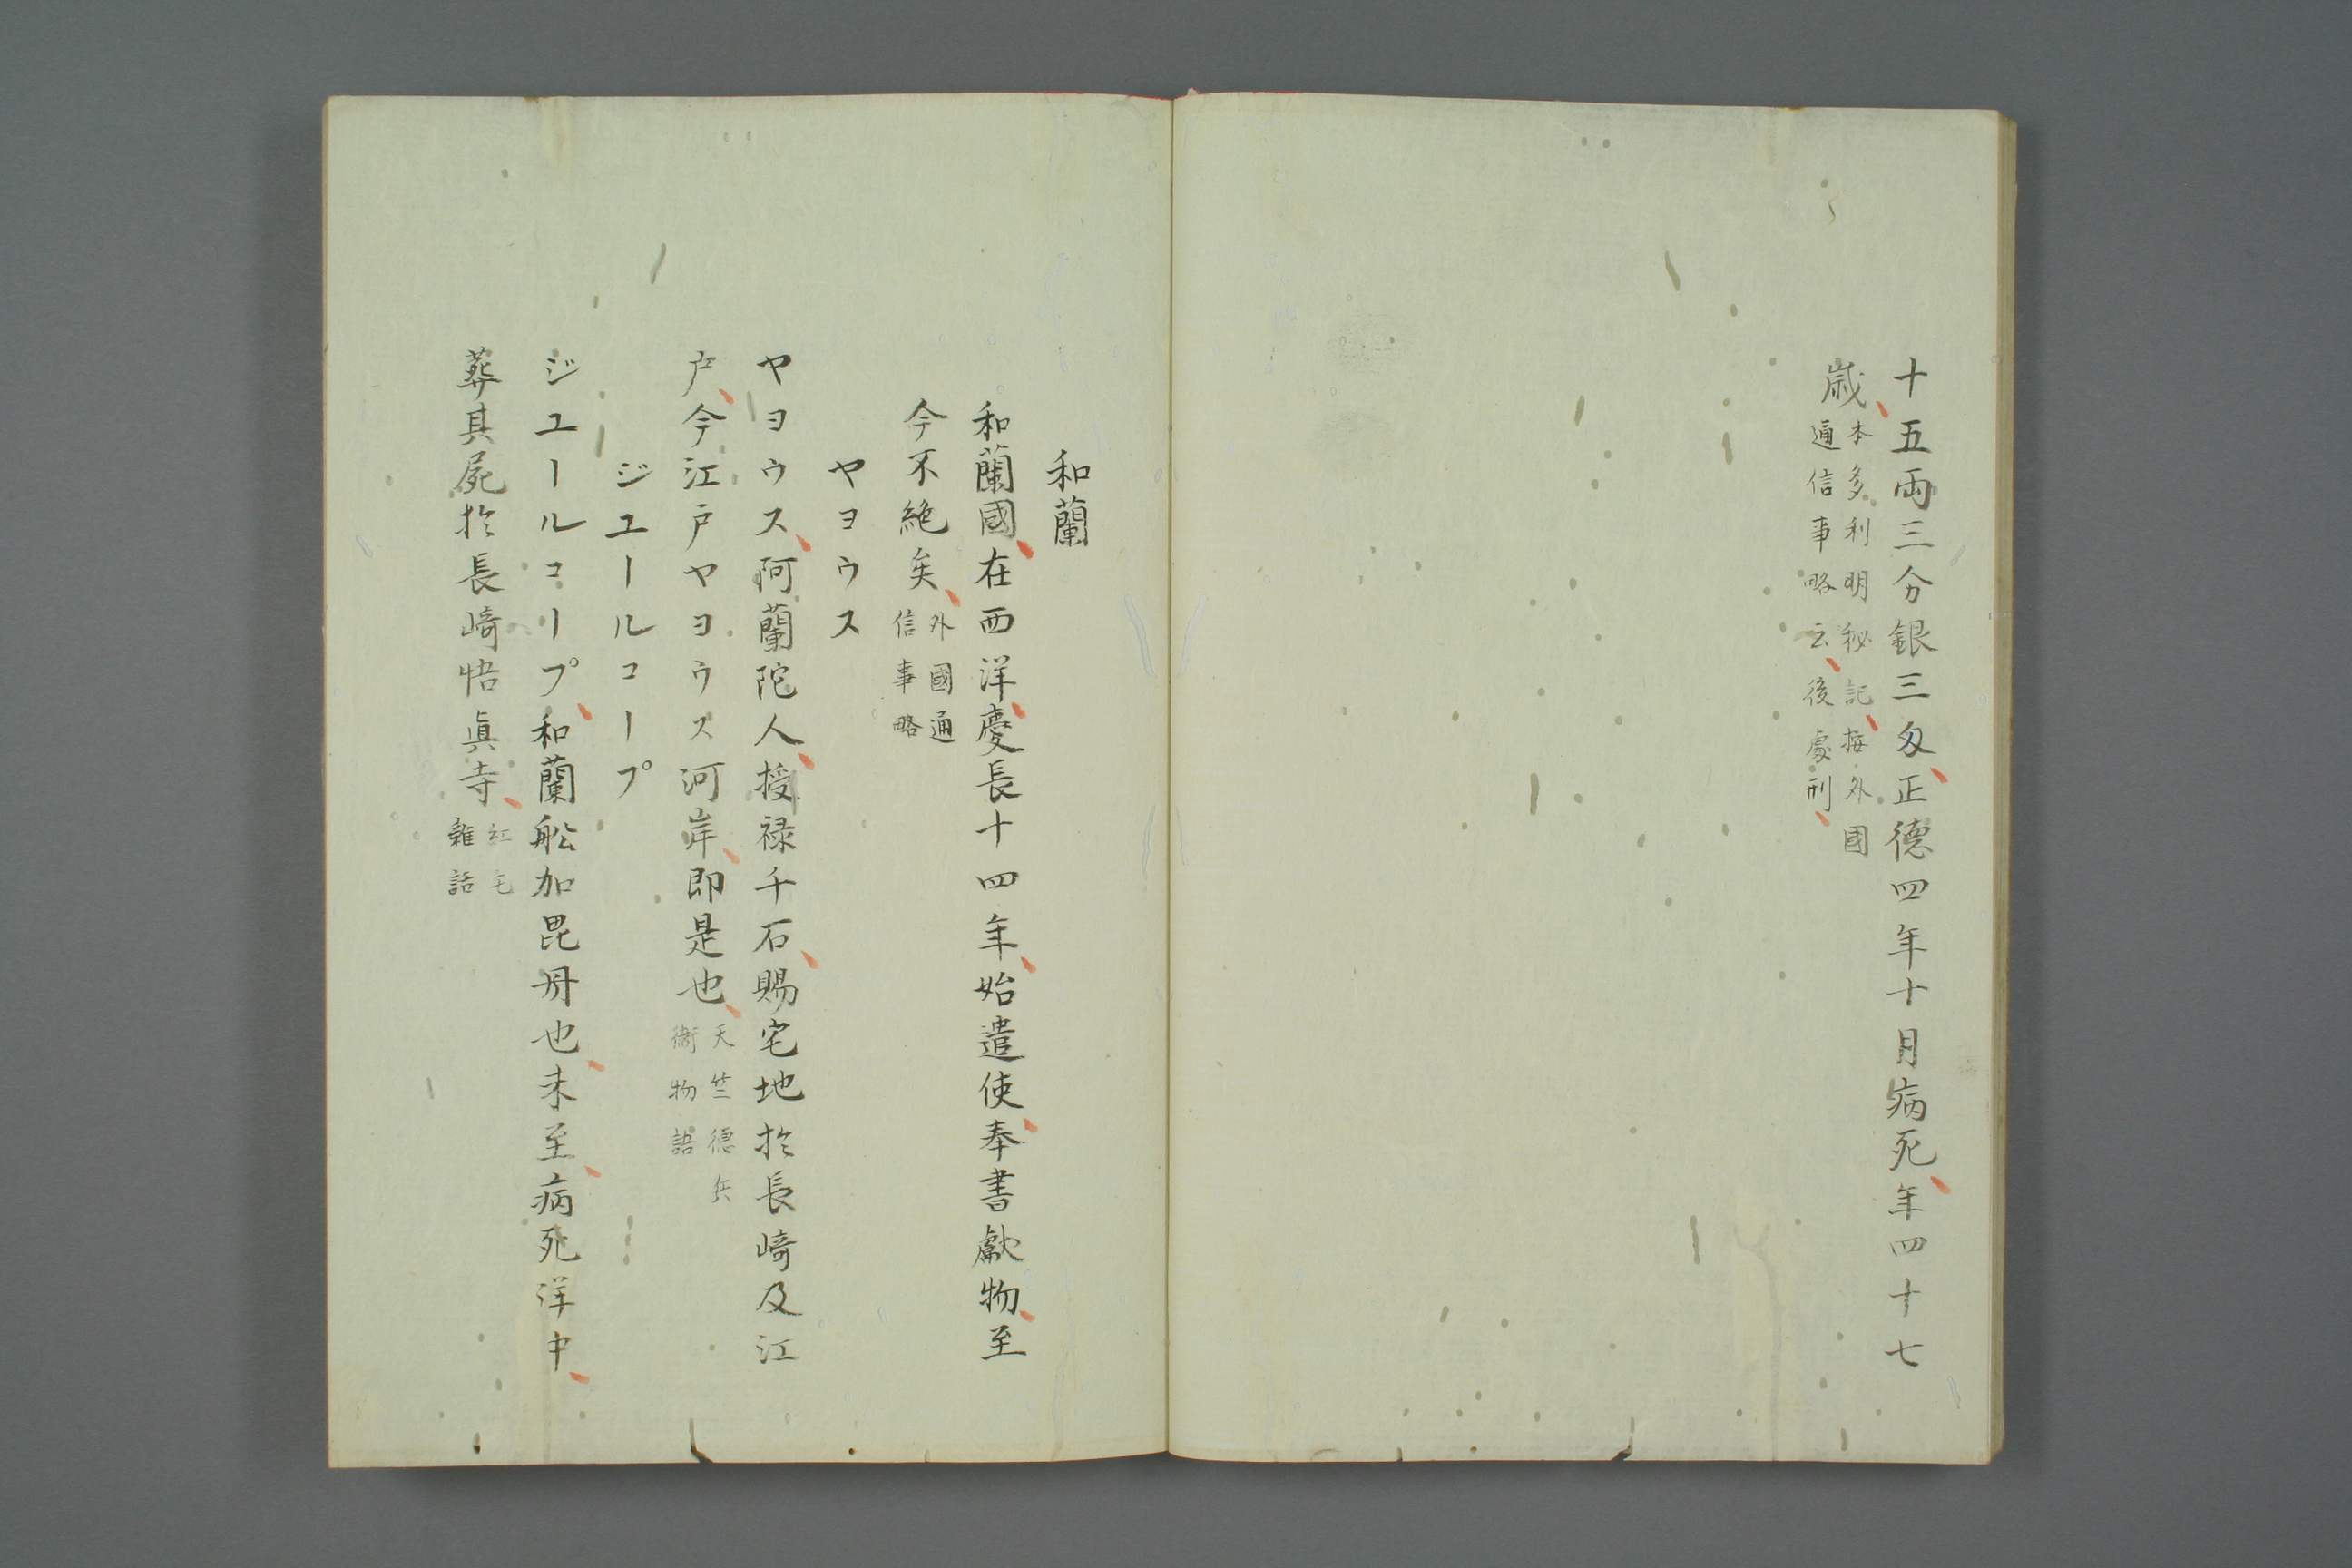 十五両三分銀三匁正德四年十月病死年四十七
歳
本多利明秘記按外國
通信事略云後處刑
和蘭
和蘭國在西洋慶長十四年始遣使奉書獻物至
今不絶矣
外國通
信事略
ヤヨウス
ヤヨウス阿蘭陀人授禄千石賜宅地於長崎及江
戸今江戸ヤヨウス河岸即是也
天竺德兵
衛物語
ジユールコープ
ジユールコープ和蘭舩加毘丹也未至病死洋中
葬其屍於長崎悟眞寺
紅毛
雜話